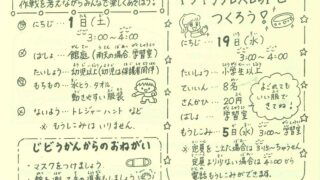 作戦を考えながらみんなで楽しくあそぼう!
にちじ… 1日(土)
3:00~4:00
ばしょ… 館庭(雨天の場合 学習室)
たいしょう… 幼児以上(幼児は保護者同伴)
もちもの… 水とう・タオル
動きやすい服装
ないよう… トレジャーハント など
※もうしこみは いりません。
じどうかんからのおねがい
・マスクをつけましょう。
つくろう?!
にちじ… 19日(水)
3:00~
ばしょ… 学習室
たいしょう… 小学生以上
ていいん… 8名
さんかひ… 20円
もうしこみ… 5日(水)
3:00~ 学習室
とめても
いい服で
きてね!
※定員をこえた場合は 3:15~ちゅうせん
定員より少ない場合は 4:00から
電話もうしこみができます。